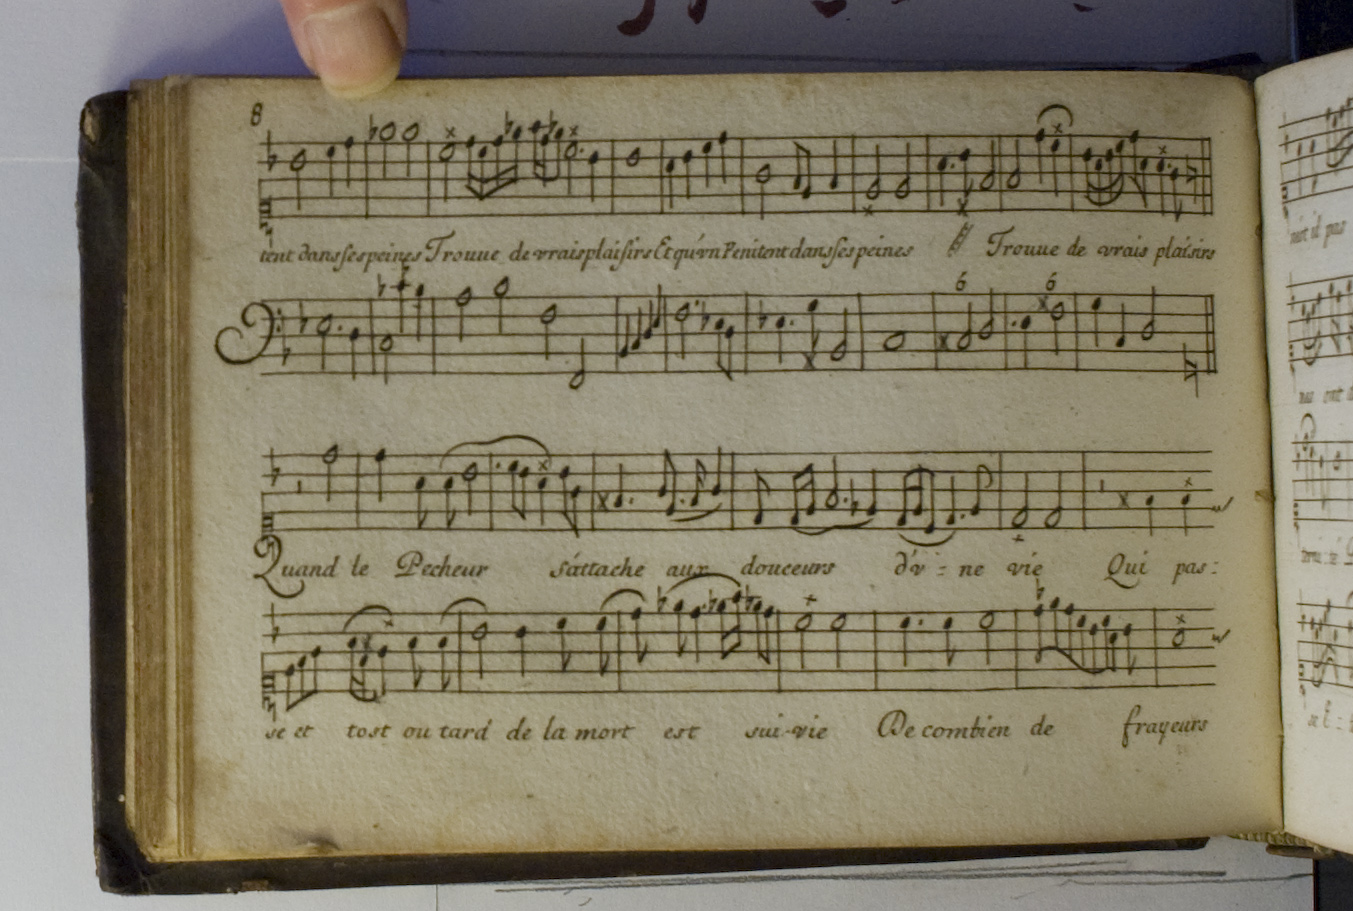 8
tent dans ses peines Trouue de vrais plaisirs Et qu'vn Penitent dans ses peines Trouue de vrais plaisirs
6 6
Quand le Pecheur s'attache aux douceurs d'v = ne vie Qui pas:
se et tost ou tard de la mort est sui-vie De combien de frayeurs